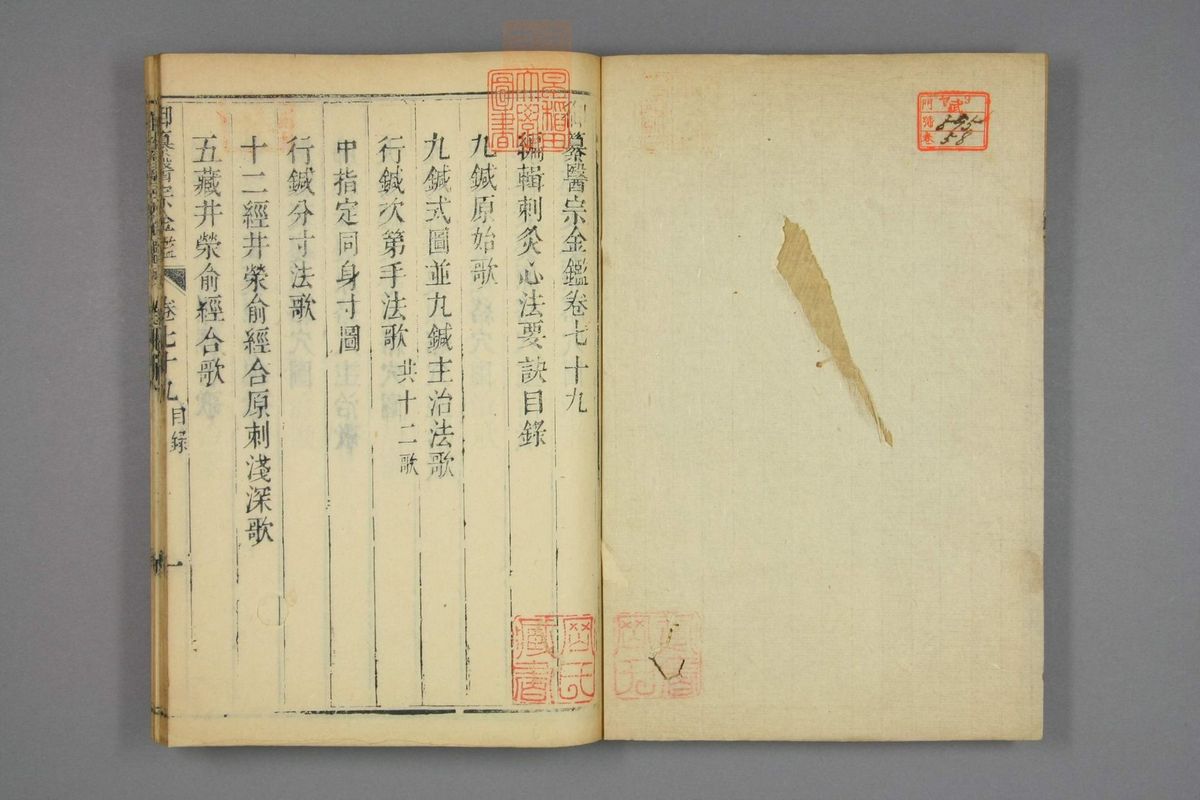 御纂醫宗金鑑卷七十九
編輯刺灸心法要訣目錄
九鍼原始歌
九鍼式圖並九鍼主治法歌
行鍼次第手法歌 共十二歌
中指定同身寸圖
行鍼分寸法歌
十二經井滎俞經合原刺淺深歌
五藏井滎俞經合歌
御纂醫宗金鑑
卷七十九
目錄
一
早稻田
大學
圖書
岡氏
藏書
門
號
卷